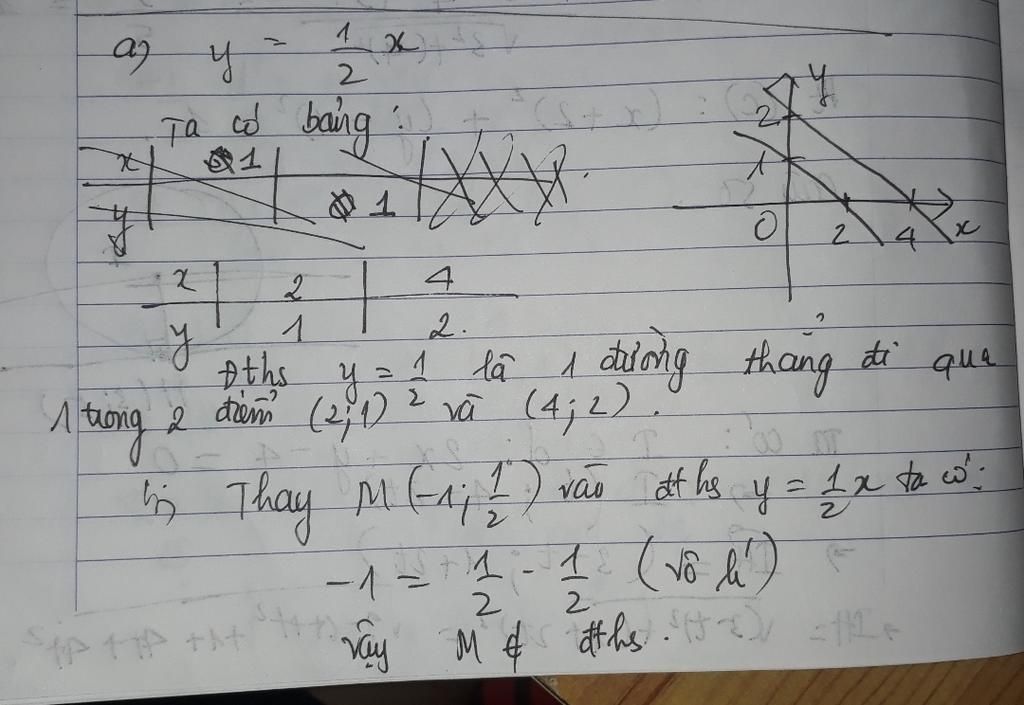 a) y = 1/2 x
Ta có bảng:
x 1
y 1
x 2 4
y 1 2.
y
2
1
0 2 4 x
Đths y = 1/2 là 1 đường thẳng đi qua
1 trong 2 điểm (2;1) và (4;2).
b) Thay M(-1; 1/2) vào đths y = 1/2 x ta có:
-1 = 1/2 - 1/2 (vô lí)
vậy M ∉ đths.